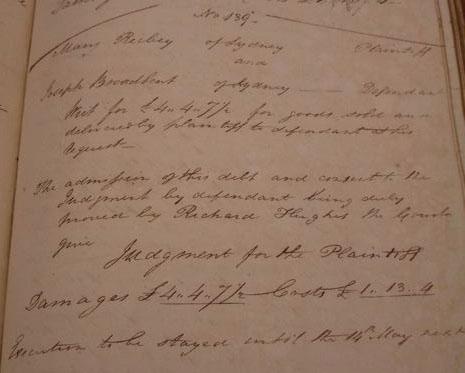 No 139
Mary Reibey of Sydney Plaintiff
and
Joseph Broadbent of Sydney Defendant
Writ for £4..4..7½ for goods sold and
delivered by plaintiff to defendant at his
request
The admission of this debt and consent to the
Judgment by defendant being duly
proved by Richard Hughes the Court
give
Judgment for the Plaintiff
Damages £4..4..7½ Costs £1..13..4
Execution to be stayed until the 14th May next